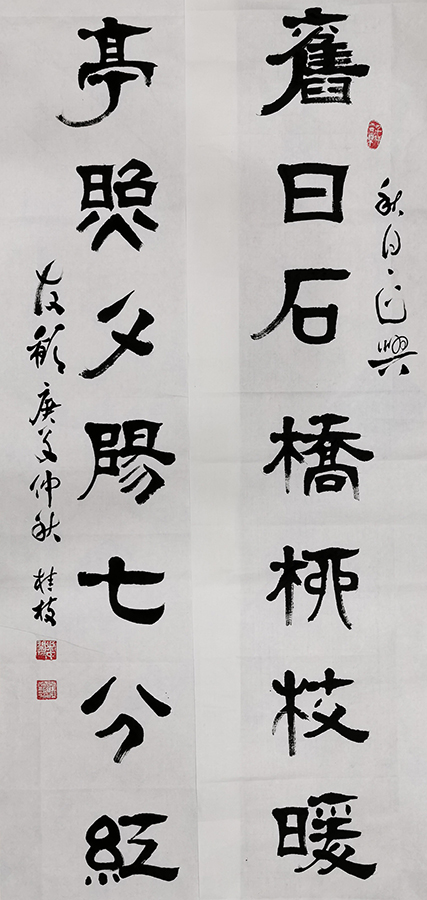 秋日 興
舊日石橋柳枝暖
亭照夕陽七分紅
庚子仲秋 桂枝